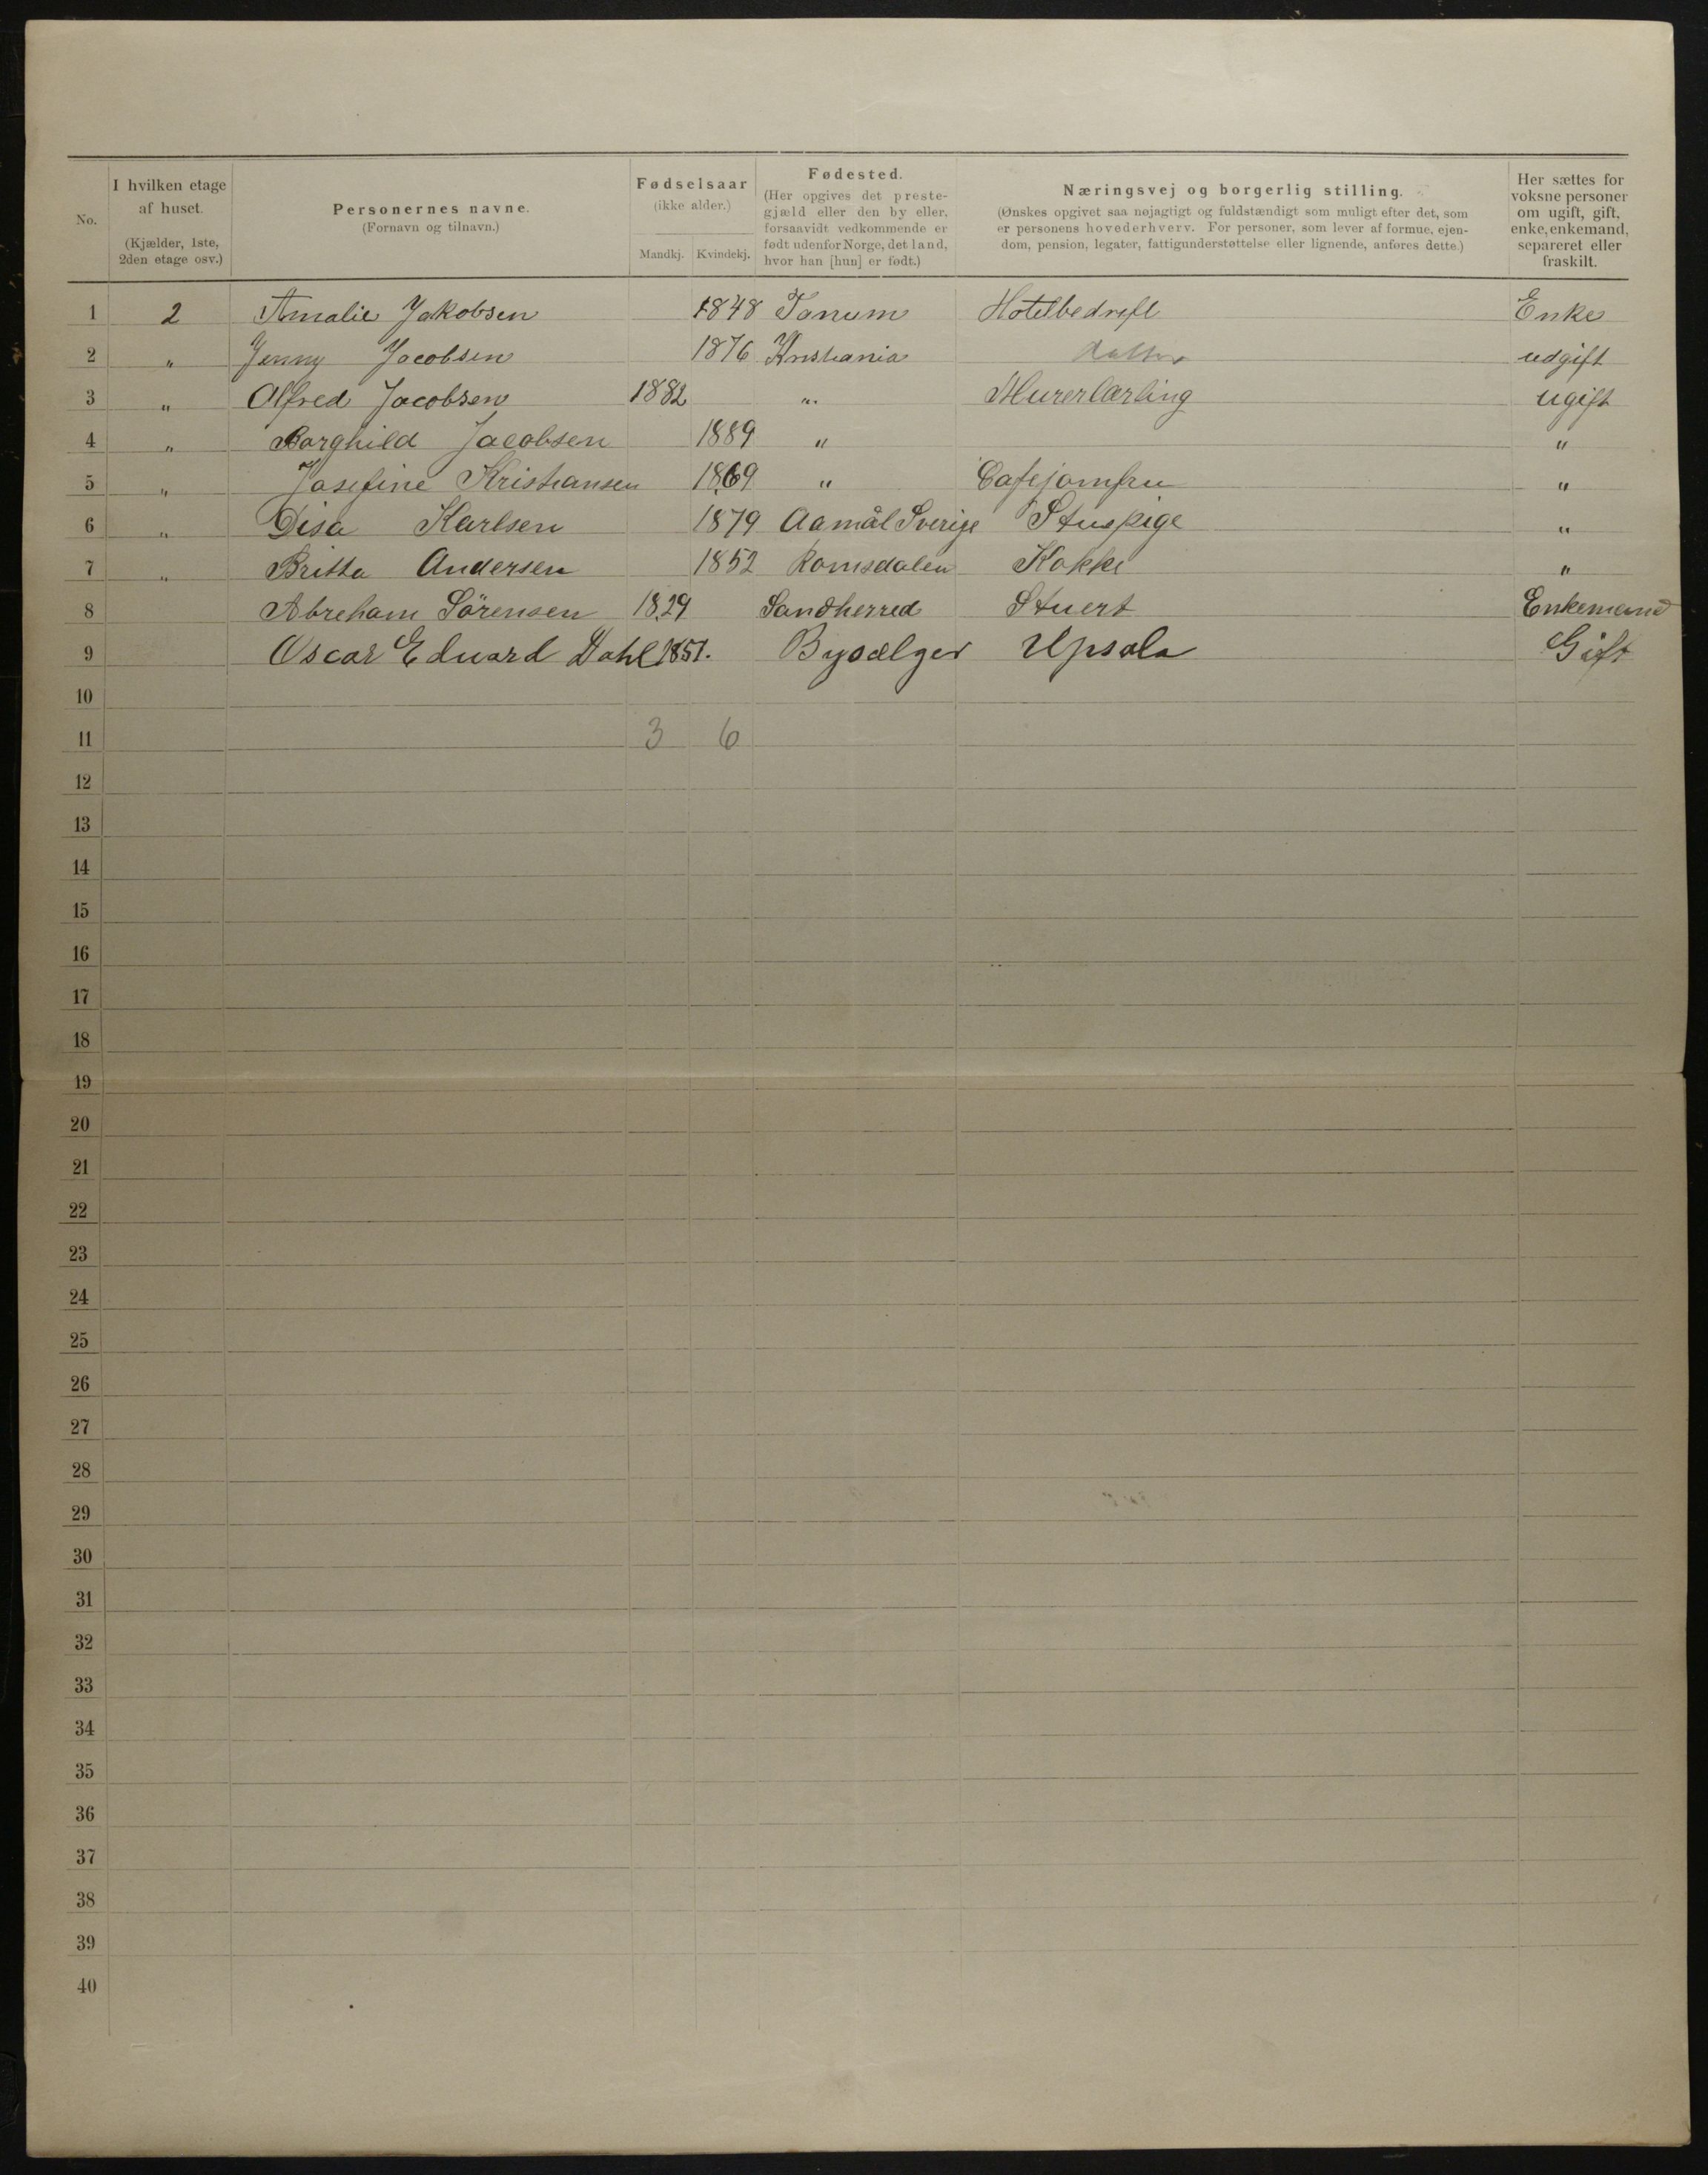 No. I hvilken etage af huset. (Kjælder, 1ste, 2den etage osv.) Personernes navne. (Fornavn og tilnavn.) Fødselsaar (ikke alder.) Mandkj. Kvindekj. Fødested. (Her opgives det prestegjæld eller den by eller, forsaavidt vedkommende er født udenfor Norge, det land, hvor han [hun] er født.) Næringsvej og borgerlig stilling. (Ønskes opgivet saa nøjagtigt og fuldstændigt som muligt efter det, som er personens hovederhverv. For personer, som lever af formue, ejendom, pension, legater, fattigunderstøttelse eller lignende, anføres dette.) Her sættes for voksne personer om ugift, gift, enke, enkemand, separeret eller fraskilt.
1 2 Amalie Jakobsen 1848 Tanum Hotelbedrift Enke
2 " Jenny Jacobsen 1876 Kristiania datter udgift
3 " Alfred Jacobsen 1882 " Murerlærling ugift
4 " Borghild Jacobsen 1889 " "
5 " Josefine Kristiansen 1869 " Cafejomfru "
6 " Disa Karlsen 1879 Aamål Sverige Stuepige "
7 " Britta Andersen 1852 Romsdalen Kokke "
8 Abreham Sörensen 1829 Sandherred Stuert Enkemand
9 Oscar Eduard Dahl 1851. Bysælger Upsala Gift
10
11 3 6
12
13
14
15
16
17
18
19
20
21
22
23
24
25
26
27
28
29
30
31
32
33
34
35
36
37
38
39
40